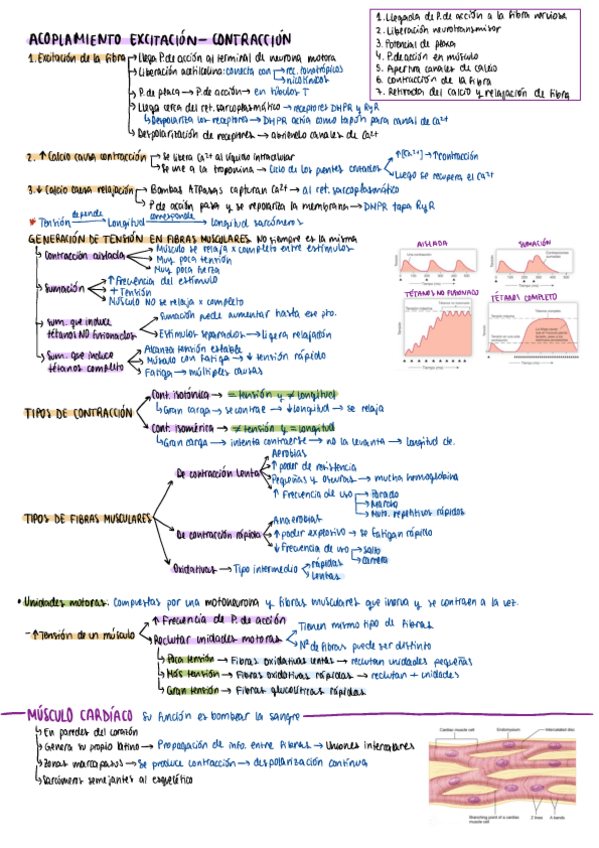 ACOPLAMIENTO EXCITACIÓN - CONTRACCIÓN
1. Llegada de P. de acción a la fibra nerviosa
2. Liberación neurotransmisor
3. Potencial de placa
4. P. de acción en músculo
5. Apertura canales de calcio
6. Contracción de la fibra
7. Retirada del calcio y relajación de fibra
1. Excitación de la fibra
Llega P. de acción al terminal de neurona motora
Liberación acetilcolina: conecta con → rec. ionotrópicos
nicotínicos
P. de placa → P. de acción → en túbulos T
Llega cerca del ret. sarcoplasmático → receptores DHPR y RyR
Despolariza los receptores → DHPR actúa como tapón para canal de Ca2+
Despolarización de receptores → abriendo canales de Ca2+
2. ↑ Calcio causa contracción
Se libera Ca2+ al líquido intracelular
Se une a la troponina → Ciclo de los puentes cruzados
↑[Ca2+] → ↑contracción
Luego se recupera el Ca2+
3. ↓ Calcio causa relajación
Bombas ATPasas capturan Ca2+ → al ret. sarcoplasmático
P. de acción pasa y se repolariza la membrana → DHPR tapa RyR
* Tensión depende Longitud corresponde Longitud sarcómeros
GENERACIÓN DE TENSIÓN EN FIBRAS MUSCULARES No siempre es la misma
Contracción aislada
Músculo se relaja x completo entre estímulos
Muy poca tensión
Muy poca fuerza
Sumación
↑ Frecuencia del estímulo
+ Tensión
Músculo NO se relaja x completo
Sum. que induce tétanos NO fusionados
Sumación puede aumentar hasta ese pto.
Estímulos separados → ligera relajación
Sum. que induce tétanos completo
Alcanza tensión estable
Músculo con Fatiga → ↓ tensión rápido
Fatiga → múltiples causas
AISLADA
SUMACIÓN
TÉTANOS NO FUSIONADO
TÉTANOS COMPLETO
TIPOS DE CONTRACCIÓN
Cont. isotónica → = tensión y ≠ longitud
Gran carga → se contrae → ↓ longitud → se relaja
Cont. isométrica → ≠ tensión y = longitud
Gran carga → intenta contraerse → no la levanta → longitud cte.
TIPOS DE FIBRAS MUSCULARES
De contracción lenta
Aerobias
↑ poder de resistencia
Pequeñas y oscuras → mucha hemoglobina
↑ Frecuencia de uso
Parado
Marcha
Mov. repetitivos rápidos
De contracción rápida
Anaerobias
↑ poder explosivo → se fatigan rápido
↓ Frecuencia de uso
Salto
Carrera
Oxidativas → Tipo intermedio
rápidas
lentas
• Unidades motoras: compuestas por una motoneurona y fibras musculares que inerva y se contraen a la vez.
- ↑ Tensión de un músculo
↑ Frecuencia de P. de acción
Reclutar unidades motoras
Tienen mismo tipo de fibras
Nº de fibras puede ser distinto
Poca tensión → Fibras oxidativas lentas → reclutan unidades pequeñas
Más tensión → Fibras oxidativas rápidas → reclutan + unidades
Gran tensión → Fibras glucolíticas rápidas
MÚSCULO CARDÍACO Su función es bombear la sangre
En paredes del corazón
Genera su propio latido → Propagación de info. entre fibras → Uniones intercelulares
Zonas marcapasos → Se produce contracción → despolarización continua
Sarcómeros semejantes al esquelético
Cardiac muscle cell
Endomysium
Intercalated disc
Branching point of a cardiac muscle cell
Z lines
A bands